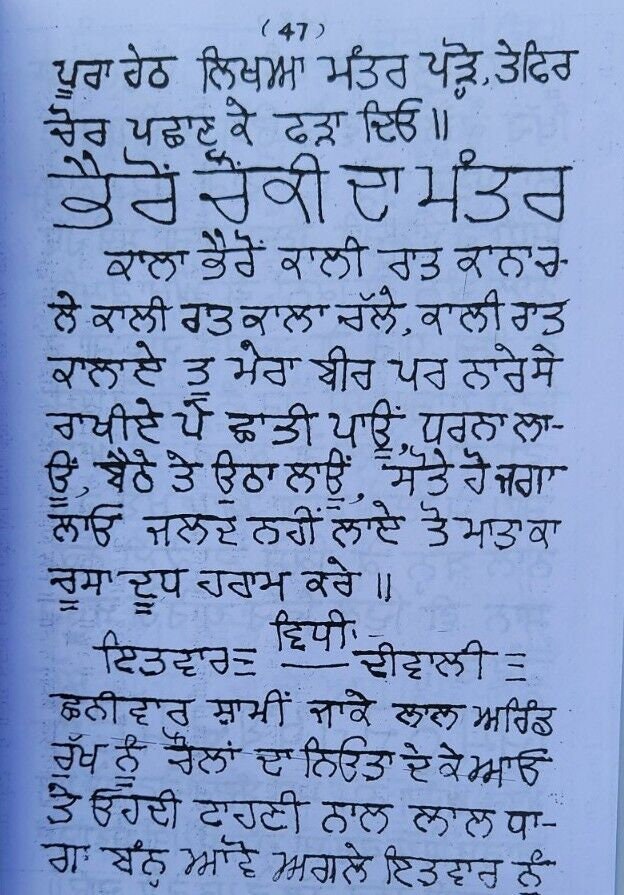 (47)
ਪੂਰਾ ਹੇਠ ਲਿਖਆ ਮੰਤਰ ਪੜ੍ਹੋ, ਤੇ ਫਿਰ
ਚੋਰ ਪਛਾਣ ਕੇ ਫੜਾ ਦਿਓ॥
ਭੈਰੋਂ ਚੌਂਕੀ ਦਾ ਮੰਤਰ
ਕਾਲਾ ਭੈਰੋਂ ਕਾਲੀ ਰਾਤ ਕਾਨਾ ਚ-
ਲੇ ਕਾਲੀ ਰਾਤ ਕਾਲਾ ਚੱਲੇ, ਕਾਲੀ ਰਾਤ
ਕਾਲਾਏ ਤੂ ਮੇਰਾ ਬੀਰ ਪਰ ਨਾਰੇ ਸੇ
ਰਾਖੀਏ ਪੇ ਛਾਤੀ ਪਾਊਂ, ਧਰਨਾ ਲਾ-
ਊਂ, ਬੈਠੇ ਤੇ ਉਠਾ ਲਾਊਂ, ਸੋਤੇ ਹੋ ਜਗਾ
ਲਾਓ ਜਲਦ ਨਹੀਂ ਲਾਏ ਤੋ ਮਾਤਾ ਕਾ
ਚੂਸਾ ਦੂਧ ਹਰਾਮ ਕਰੇ॥
ਵਿਧੀ:-
ਇਤਵਾਰ= ਦੀਵਾਲੀ =
ਛਨੀਵਾਰ ਸ਼ਾਮੀਂ ਜਾਕੇ ਲਾਲ ਅਰਿੰਡ
ਰੁੱਖ ਨੂੰ ਚੌਲਾਂ ਦਾ ਨਿਓਤਾ ਦੇ ਕੇ ਆਓ
ਤੇ ਓਹਦੀ ਟਾਹਣੀ ਨਾਲ ਲਾਲ ਧਾ-
ਗਾ ਬੰਨ੍ਹ ਆਵੋ ਅਗਲੇ ਇਤਵਾਰ ਨੂੰ